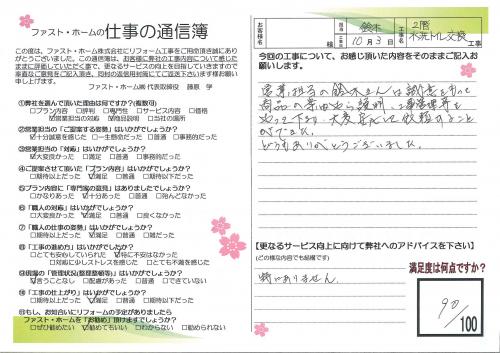 ファスト・ホームの仕事の通信簿
この度は、ファスト・ホーム株式会社にリフォーム工事をご用命頂き誠にあり
がとうございました。この通信簿は、お客様に弊社の工事内容について感じた
ままに評価していただく事で、更なるサービスの向上を目指していきますので
率直なご意見をご記入頂き、同封の返信用封筒にてご返送下さいます様お願
い申し上げます。
ファスト・ホーム㈱ 代表取締役 藤原 学
①弊社を選んで頂いた理由は何ですか?(複数可)
□プラン内容 □評判 □専門性 □サービス内容 □価格
□対応 □商品説明 □当社の場所
②営業担当の「ご提案する姿勢」はいかがでしょうか?
□十分誠意を感じた □一生懸命だった □事務的だった
③営業担当の「対応」はいかがでしょうか?
□大変良かった □満足 □普通 □事務的だった
④ご提案させて頂いた「プラン内容」はいかがでしょうか?
□期待以上だった □満足 □普通 □期待以下だった
⑤プラン内容に「専門家の意見」はありましたか?
□かなりあった □十分あった □普通 □殆んどなかった
⑥「職人の対応」はいかがでしょうか?
□大変良かった □満足 □普通 □良くなかった
⑦「職人の仕事の姿勢」はいかがでしょうか?
□期待以上だった □満足 □普通 □雑だった
⑧「工事の進め方」はいかがでしたか?
□とても安心していられた □特に不安はなかった
□対処に少しストレスを感じた □とても不満を感じた
⑨現場の「管理状況(整理整頓等)」はいかがでしたか?
□言うことなし □配慮があった □普通 □できていない
⑩「工事の仕上がり」はいかがでしょうか?
□期待以上だった □満足 □普通 □期待以下だった
⑪もし、お知合いにリフォームの予定がありましたら
ファスト・ホームを「お勧め」頂けますでしょうか?
□ぜひ勧めたい □勧めてもいい □わからない □勧められない
お客様名 様
担当 鈴木
10月3日
工事名 2階 水洗トイレ交換 工事
今回の工事について、お感じ頂いた内容をそのままご記入お
願いします。
営業担当の鈴木さんは
商品の
大変安心して依頼すること
ができました。
どうもありがとうございました。
【更なるサービス向上に向けて弊社へのアドバイスを下さい】
(どの様な内容でも結構です)
特にありません。
満足度は何点ですか?
90
/100